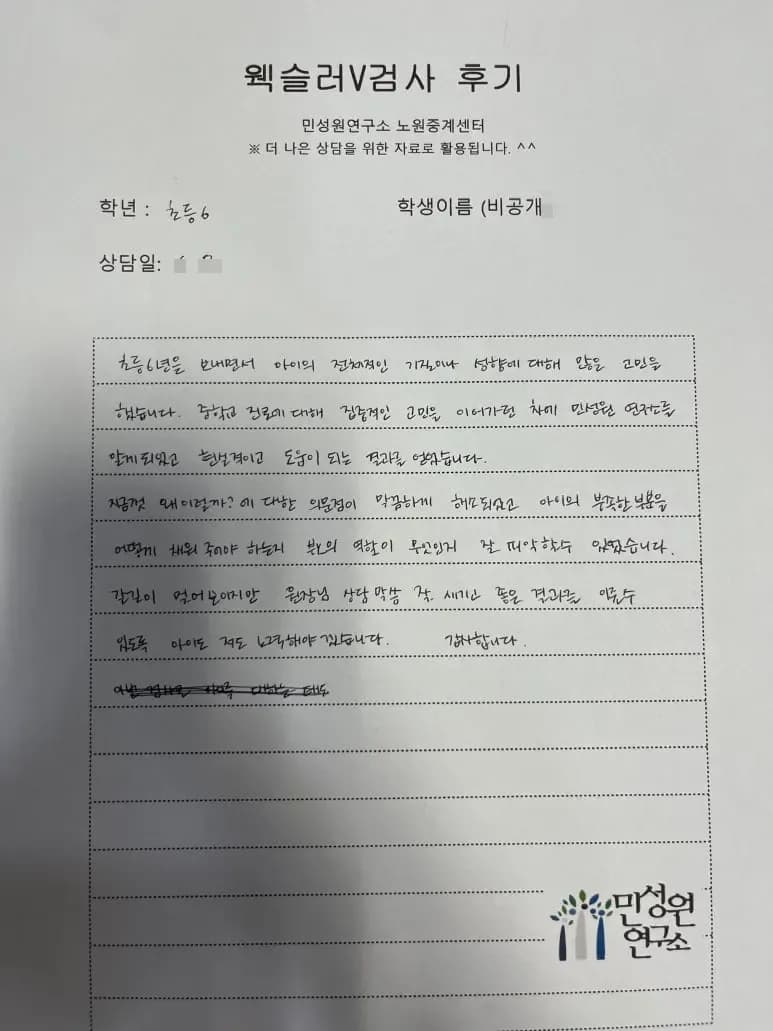 웩슬러V검사 후기
민성원연구소 노원중계센터
※ 더 나은 상담을 위한 자료로 활용됩니다. ^^
학년 : 초등6
학생이름 (비공개
상담일:
초등6년을 보내면서 아이의 전체적인 기질이나 성향에 대해 많은 고민을
했습니다. 중학교 진로에 대해 집중적인 고민을 이어가던 차에 민성원 연구소를
알게되었고 현실적이고 도움이 되는 결과를 얻었습니다.
지금껏 왜이럴까? 에 대한 의문점이 말끔하게 해소되었고 아이의 부족한부분을
어떻게 채워 주어야 하는지 부모의 역할이 무엇인지 잘 파악할수 있었습니다.
갈길이 멀어보이지만 원장님 상담말씀 잘 새기고 좋은 결과를 이룰수
있도록 아이도 저도 노력해야겠습니다. 감사합니다.
민성원
연구소